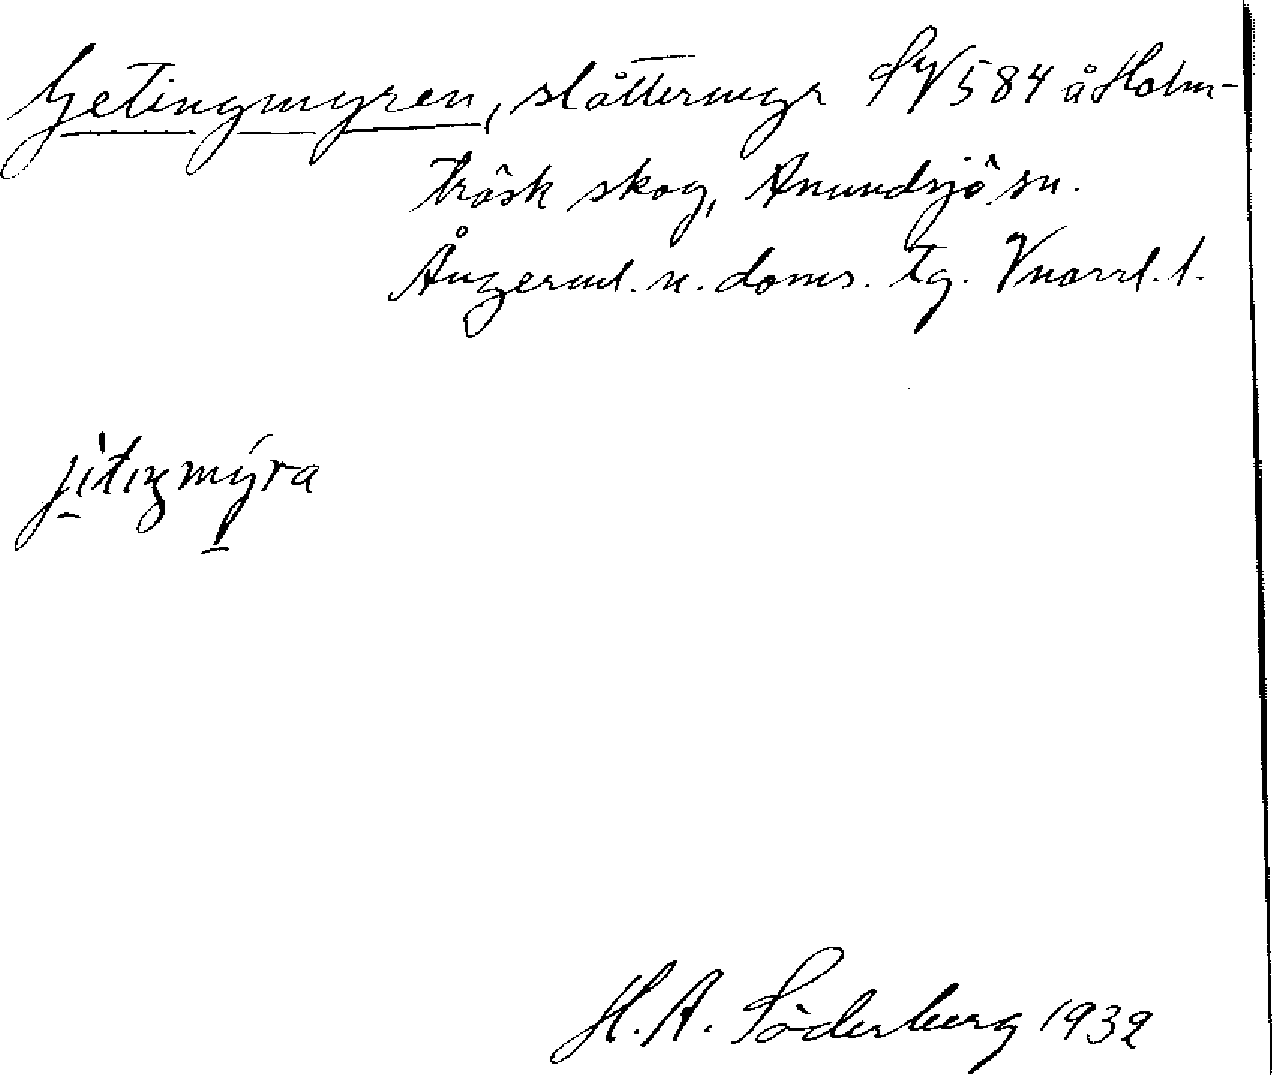 Getingmyren, slåttermyr SV 584 å Holm-
träsk skog, Anundsjö sn.
Ångerml. n. doms. tg. Vnorrl. l.
jìtıŋmy̆ra
H. A. Söderberg 1932